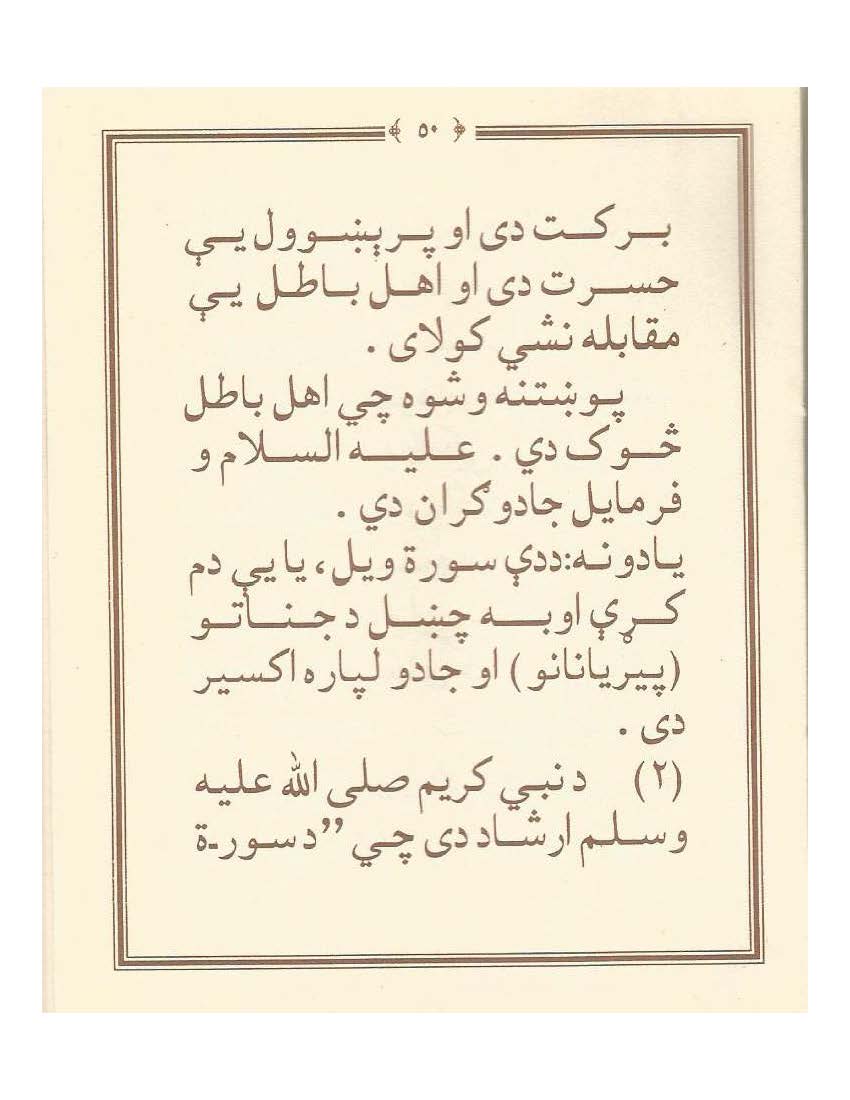 ﴿ ۵۰ ﴾
برکت دی او پرېښوول يې
حسرت دی او اهل باطل يې
مقابله نشي کولای .
پوښتنه وشوه چي اهل باطل
څوک دي . عليه السلام و
فرمايل جادوګران دي .
يادونه:ددې سورة ويل، يا يې دم
کړې اوبه چښل د جناتو
(پيريانانو) او جادو لپاره اکسير
دی .
(۲) د نبي کريم صلی الله عليه
وسلم ارشاد دی چي ”د سورة